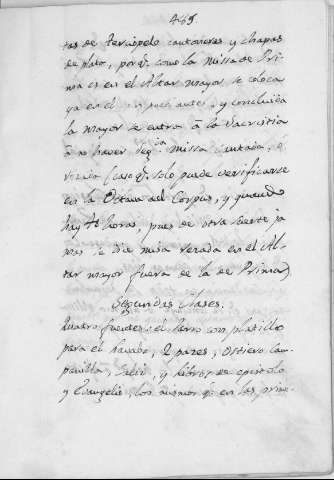 465.
tas de terciopelo cantoneras y chapas
de plata, porq.e como la missa de Pri-
ma es en el Altar mayor se coloca
ya en el antes, y concluida
la mayor se entra â la Sacristia
â no haver seg.da missa cantada, ó
rezada (caso q.e solo puede verificarse
en la Octava del Corpus, y quando
hay 40 horas, pues de otra suerte ja
mas se dice misa rezada en el Al-
tar mayor fuera de la de Prima)
Segundas Clases.
Quatro fuentes: el Jarro con platillo
para el lavabo, 2 pares, Ostiero Cam-
panilla, Caliz, y libros de epistola
y Evangelio, los mismos q.e en las prim.